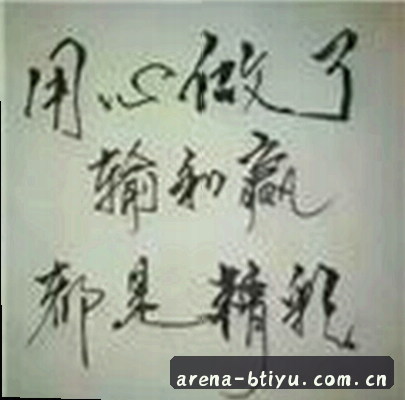 用心做了
输和赢
都是精彩
arena-btiyu.com.cn